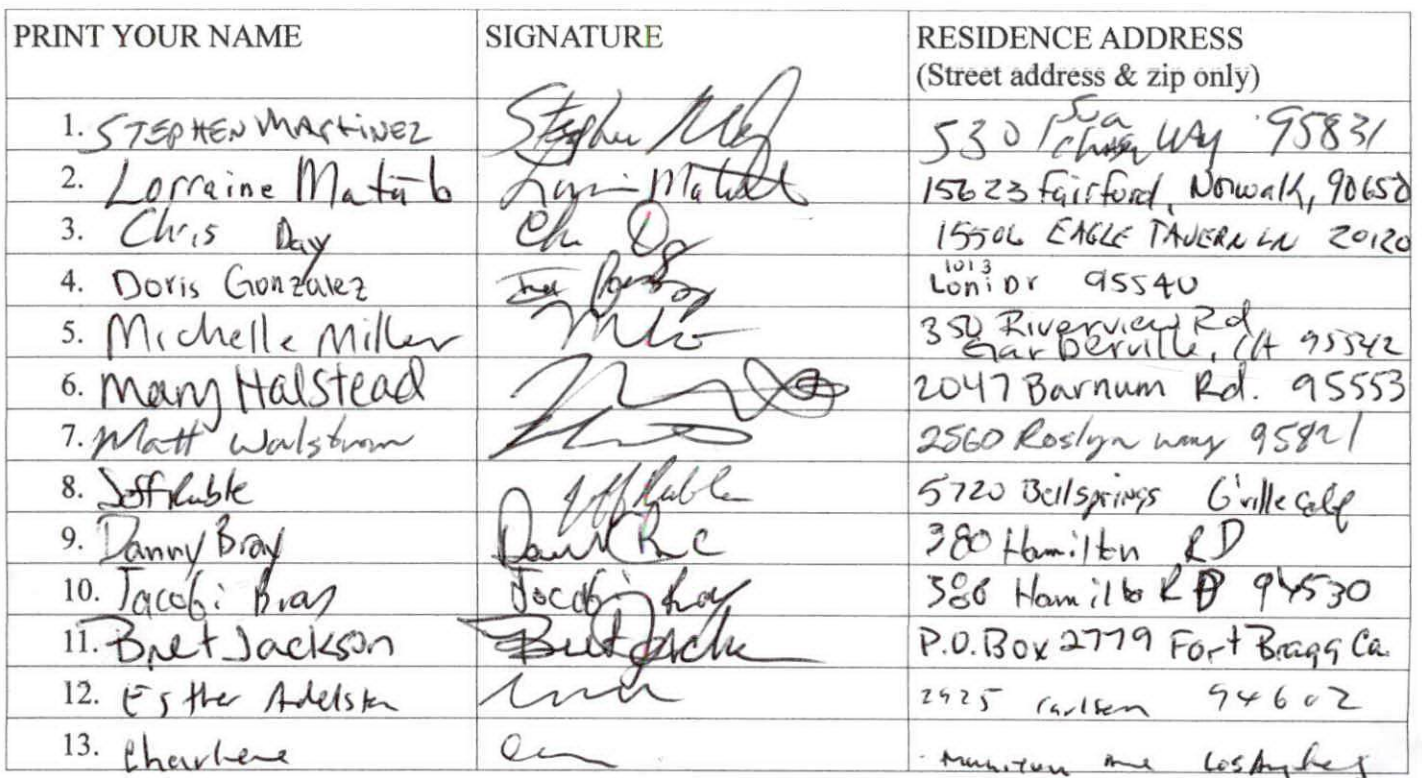 PRINT YOUR NAME SIGNATURE RESIDENCE ADDRESS
(Street address & zip only)
1. STEPHEN MARTINEZ Stephen 530 WAY 95831
2. Lorraine 15623 Fairford, Norwalk, 90650
3. Chris Day 15506 EAGLE TAVERN LN 20120
4. Doris Gonzalez 1013 Loni Dr 95540
5. Michelle Miller 350 Riverview Rd
Garberville, CA 95542
6. Mary Halstead 2047 Barnum Rd. 95553
7. Matt Walstrom 2560 Roslyn way 95821
8. Jeff Ruble Jeff Ruble 5720 Bellsprings G'ville Calif
9. Danny Bray 380 Hamilton RD
10. Jacobi Bray Jacobi Bray Hamilto RD
11. Bret Jackson P.O. Box 2779 Fort Bragg Ca.
12. Esther 2925 Carlsen 94602
13. Charlene Los Angeles